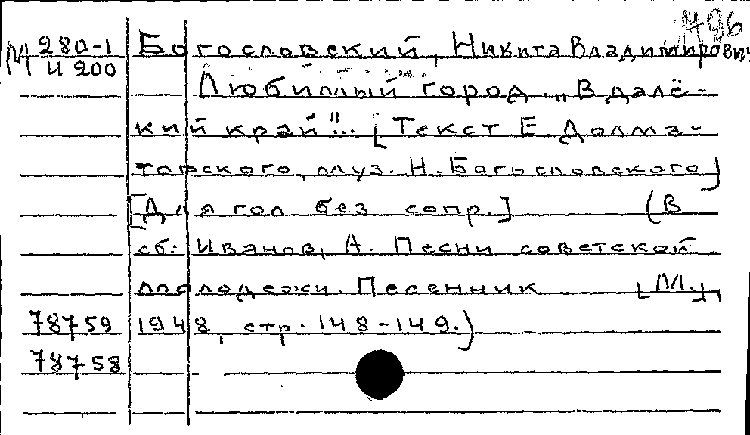 496
М 280-1 Богословский, Никита Владимирович
И 200
Любимый город. „В далё-
кий край"... [Текст Е. Долма-
товского, муз. Н. Богословского]
[Для гол. без сопр.] (В
сб.: Иванов, А. Песни советской
молодежи. Песенник [М.],
78759 1948, стр. 148-149.)
78758